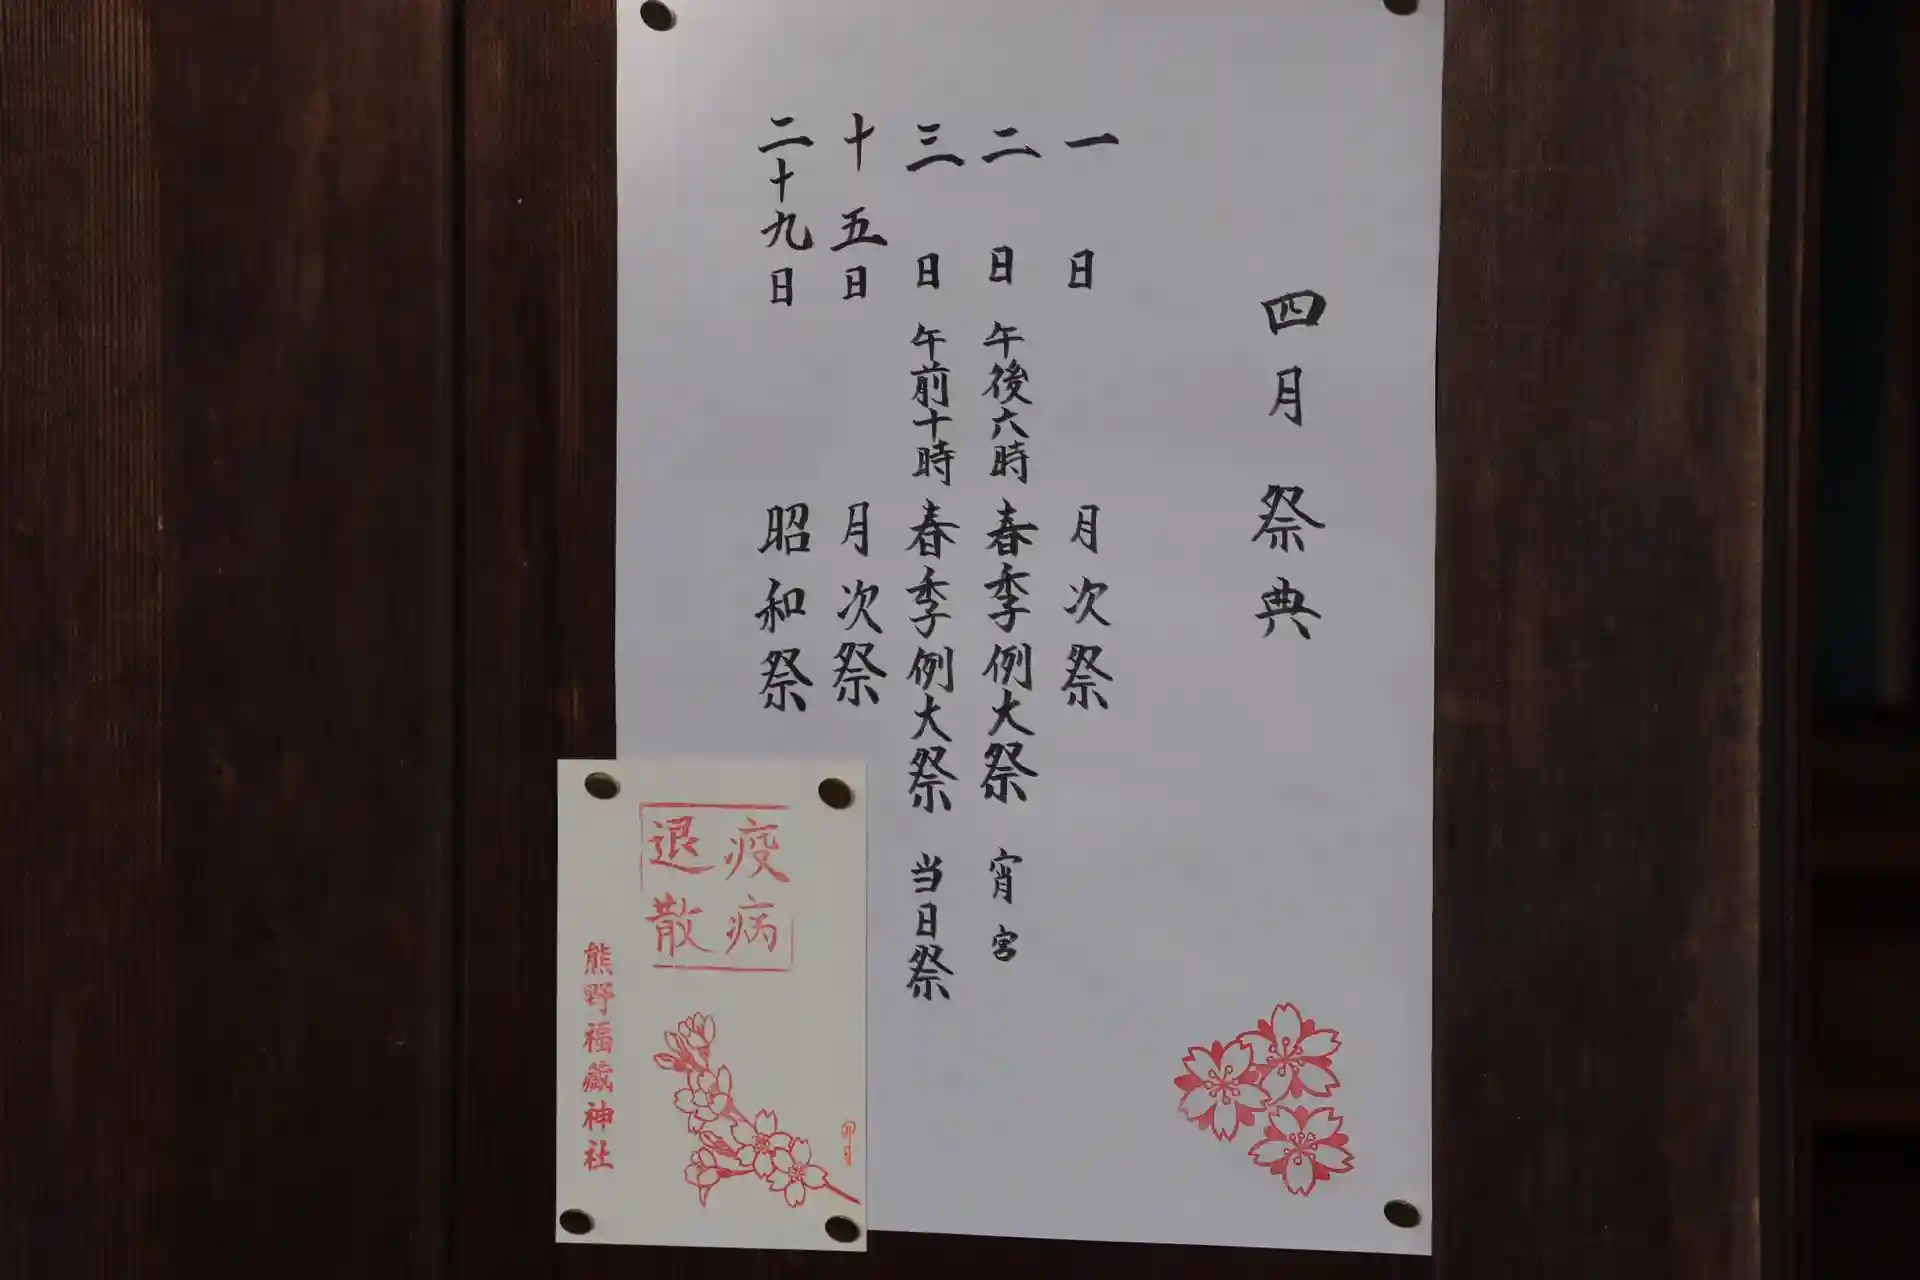 四月祭典
一日 月次祭
二日 午後六時 春季例大祭 宵宮
三日 午前十時 春季例大祭 当日祭
十五日 月次祭
二十九日 昭和祭
疫病
退散
卯月
熊野福藏神社